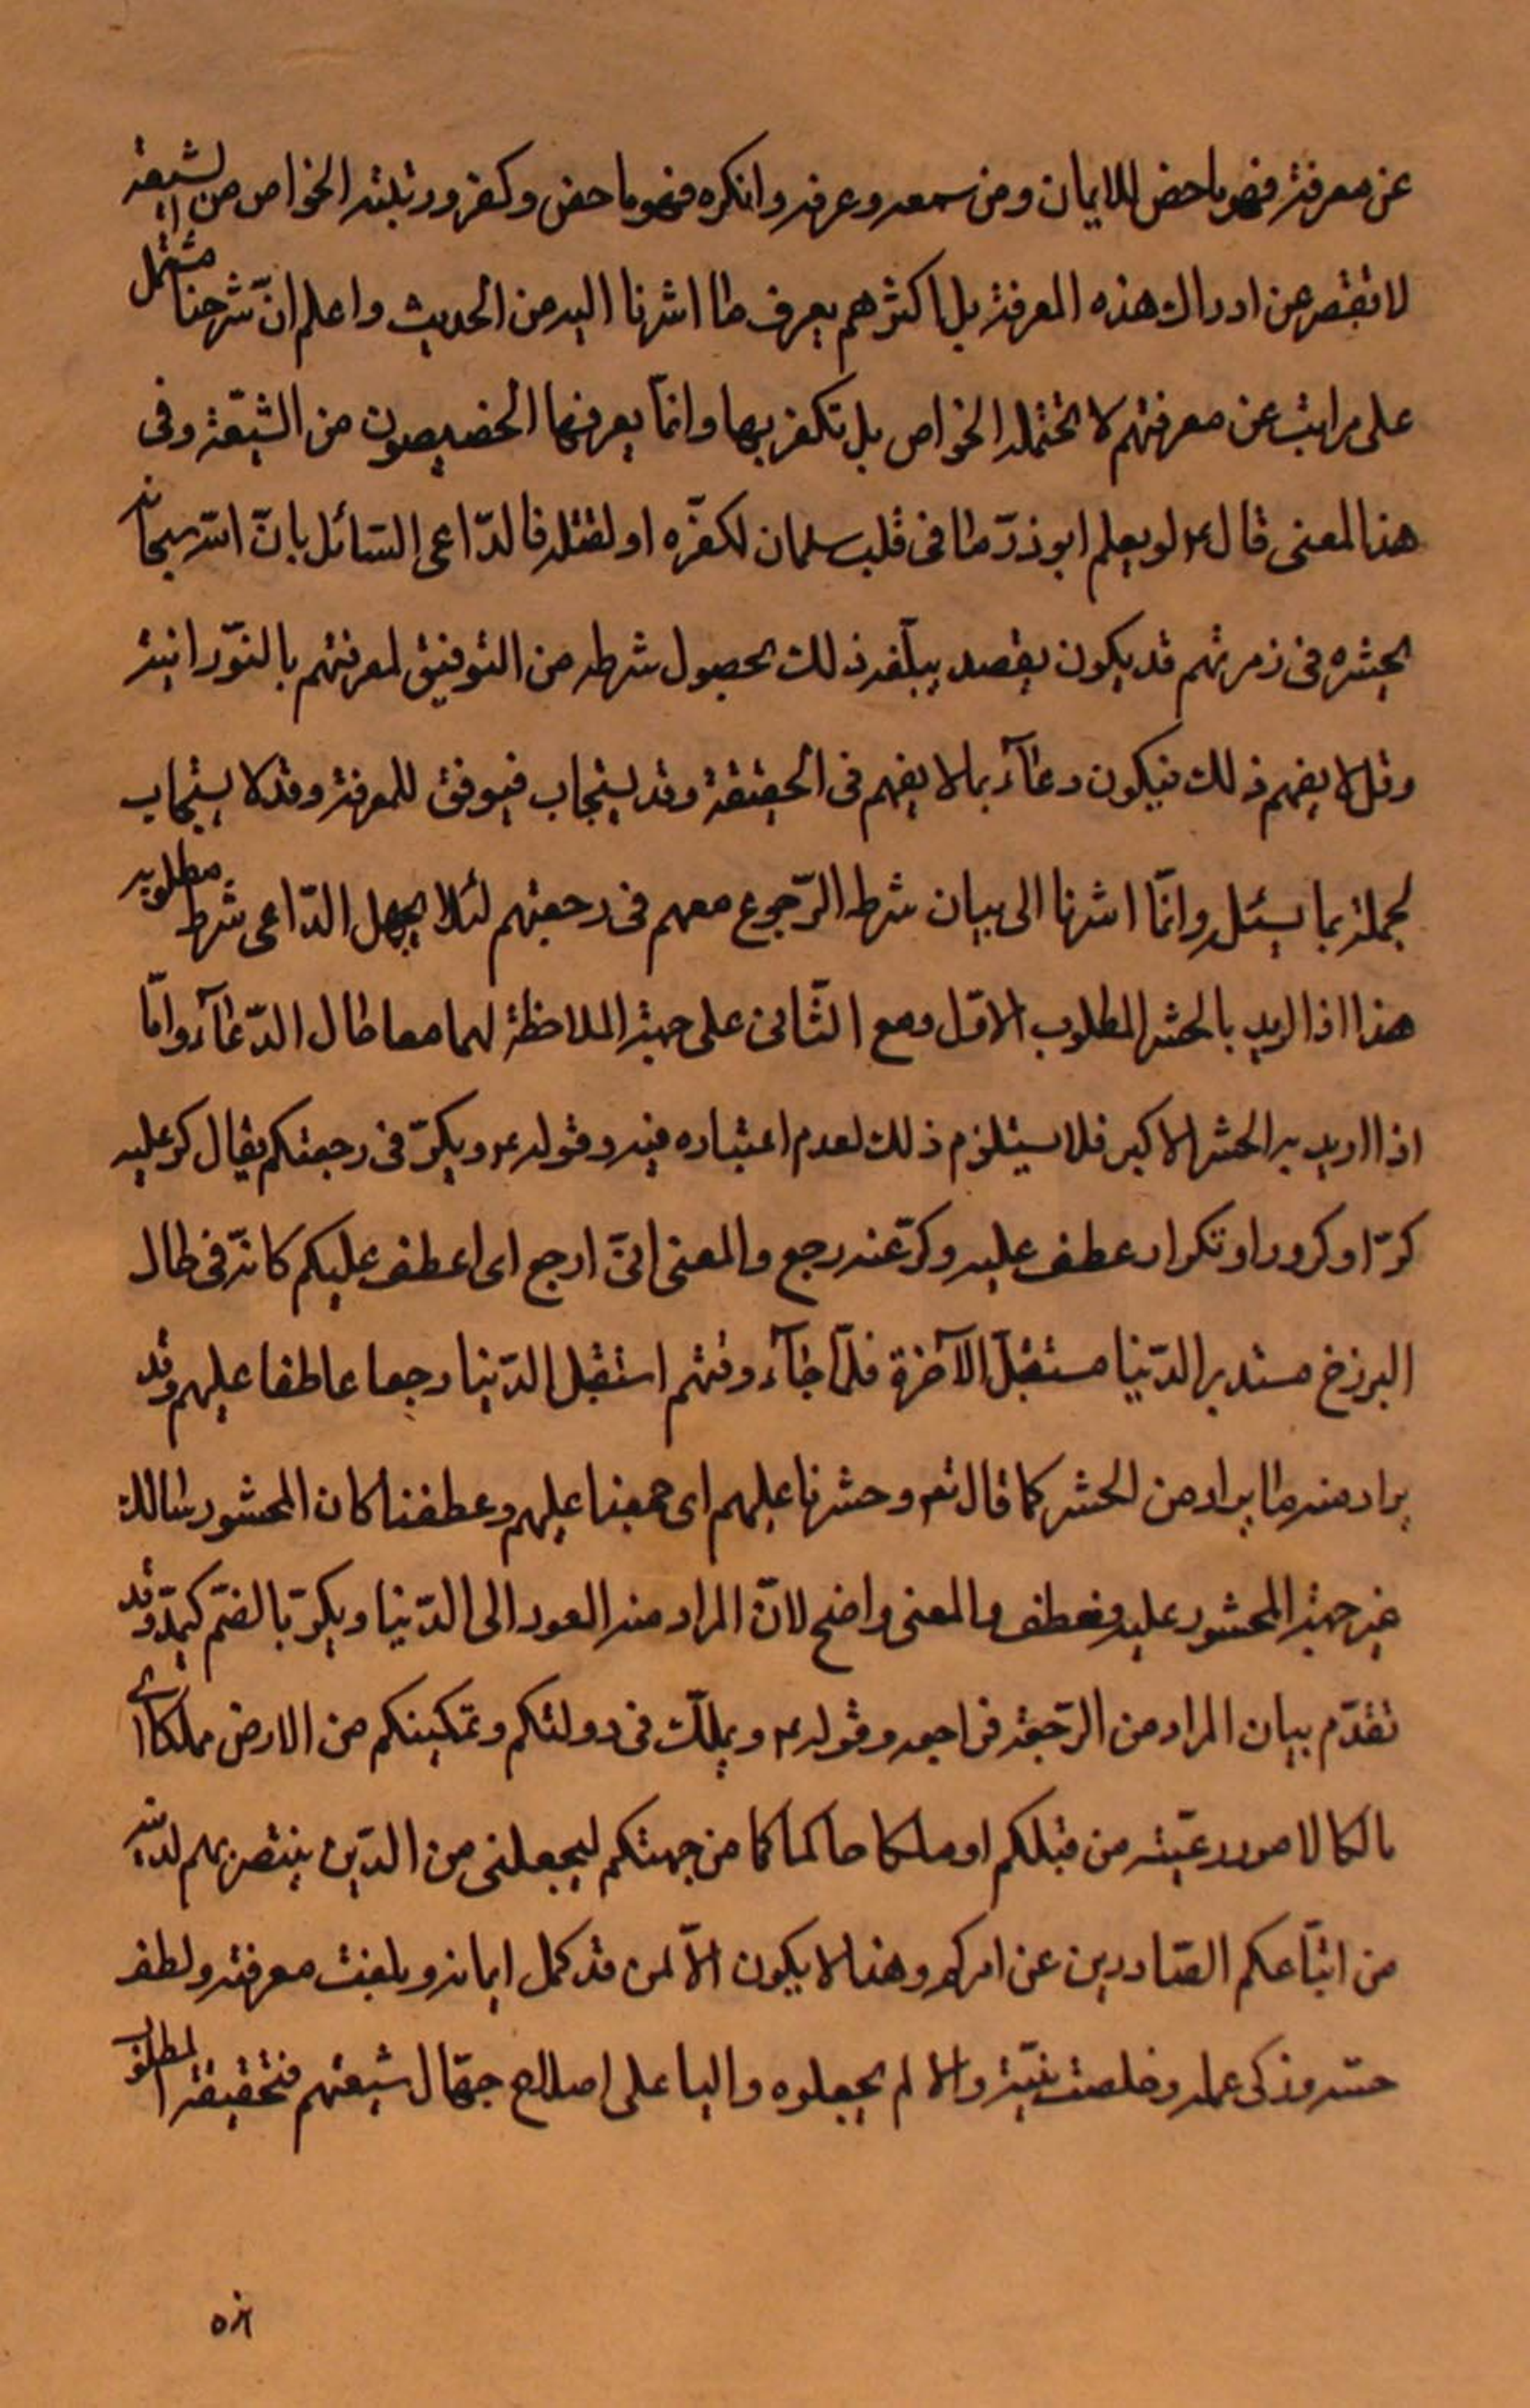 عن معرفة فهو ماحض للايمان ومن سمعه وعرفه وانكره فهو ماحض وكفر ورتبته الخواص من الشيعة
لا تقصر عن ادراك هذه المعرفة بل اكثرهم يعرف ما اشرنا اليه من الحديث واعلم انّ شرحنا مشتمل
على مراتب عن معرفتهم لا تحتمله الخواص بل تكفر بها وانّما يعرفها الخصيصون من الشّيعة وفى
هذا المعنى قال ع لو يعلم ابوذرّ ما فى قلب سلمان لكفّره او لقتله فالدّاعى السّائل بانّ الله سبحانه
يحشره فى زمرتهم قد يكون يقصد ذلك بحصول شرطه من التّوفيق لمعرفتهم بالنّورانيّة
وقد لا يفهم ذلك فيكون دعآء بما لا يفهم فى الحقيقة وقد يستجاب فيوفق للمعرفة وقد لا يستجاب
لجهله بما يسئل وانّما اشرنا الى بيان شرط الرّجوع معهم فى رجعتهم لئلا يجهل الدّاعى شرط مطلوبه
هذا اذا اريد بالحشر المطلوب الاوّل ومع الثّانى على جهة الملاحظة لهما معا حال الدّعآء وامّا
اذا اريد به الحشر الاكبر فلا يستلزم ذلك لعدم اعتباره فيه وقوله ع ويكرّ فى رجعتكم يقال كر عليه
كرّا وكرورا وتكرار عطف عليه وكرّ عنه رجع والمعنى انّى ارجع اى اعطف عليكم كانّه فى حال
البرزخ مستدبر الدّنيا مستقبل الآخرة فلمّا جآء وقتهم استقبل الدّنيا رجعا عاطفا عليهم وقد
يراد منه ما يراد من الحشر كما قال تع وحشرنا عليهم اى جمعنا عليهم وعطفنا كان المحشور سالك
غير جهة المحشور عليه فعطف والمعنى واضح لانّ المراد منه العود الى الدّنيا ويكرّ بالضّم كيمدّ وقد
تقدّم بيان المراد من الرّجعة فراجعه وقوله ع ويملّك فى دولتكم وتمكينكم من الارض مملكا اى
مالكا لامور رعيّته من قبلكم او ملكا حاكما من جهتكم ليجعلنى من الذّين ينتصر بهم لدينه
من اتبّاعكم الصّادرين عن امركم وهذا لا يكون الاّ لمن قد كمل ايمانه وبلغت معرفته ولطف
حسّه وزكى عمله وخلصت نيّته والا لم يجعلوه واليا على اصلاح جهّال شيعتهم فتحقيقة المطلوب
٥٨